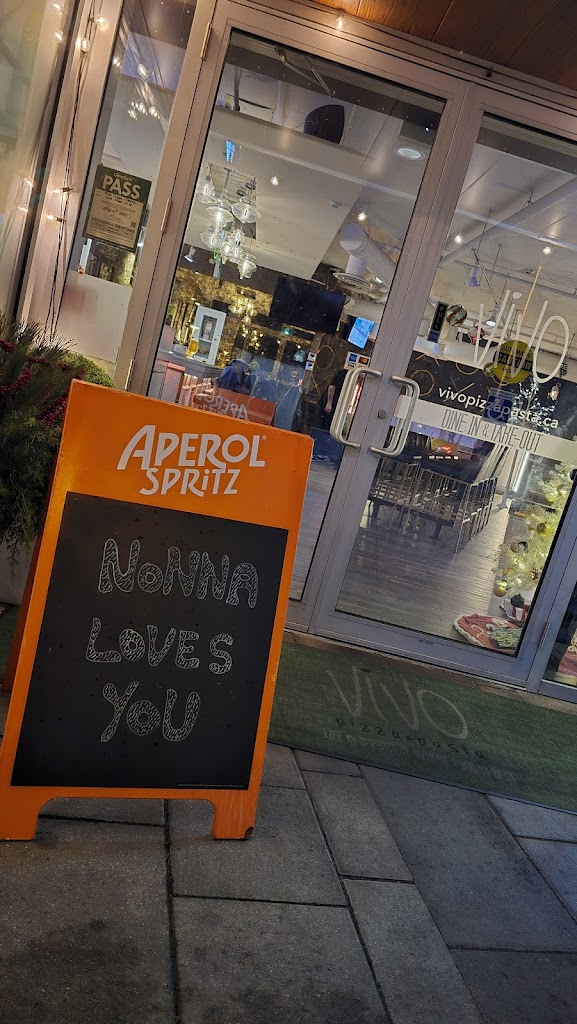 PASS
APEROL
SPRiTZ
NoNNA
LoVES
YoU
ViVO
vivopizzapasta.ca
DINE-IN & TAKE-OUT
ViVO
pizza-pasta